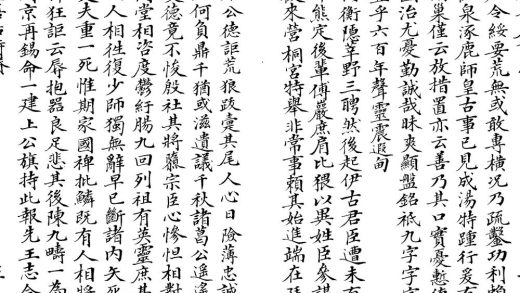 令綏要荒無或敢專橫況乃疏鑿功利賴
泉涿鹿師皇古事已見成湯特踵行爰有
巢僅云放措置亦云善乃其口實憂慚
國治尤憂勤誠哉昧爽顯盤銘祗九字字
至乎六百年聲靈震遐甸
衡隱莘野三聘然後起伊古君臣遭未有
熊定後輩傅巖庶肩比猥以異姓臣參謀
來營桐宮特舉非常事賴其始進端在
公德詎荒狼跋疐其尾人心日險薄忠誠
何負鼎干猶或滋遺議千秋諸葛公遙遙
德竟不悛殷社其將隳宗臣心慘怛相對
堂相咨度鬱紆腸九回列祖有英靈庶其
人相往復少師獨無辭早已斷諸内矢死
大重一死惟期家國裨批鱗既有人相將
狂詎云辱抱器良足悲其後陳九疇一為
京再錫命一建上公旗持此報先王志